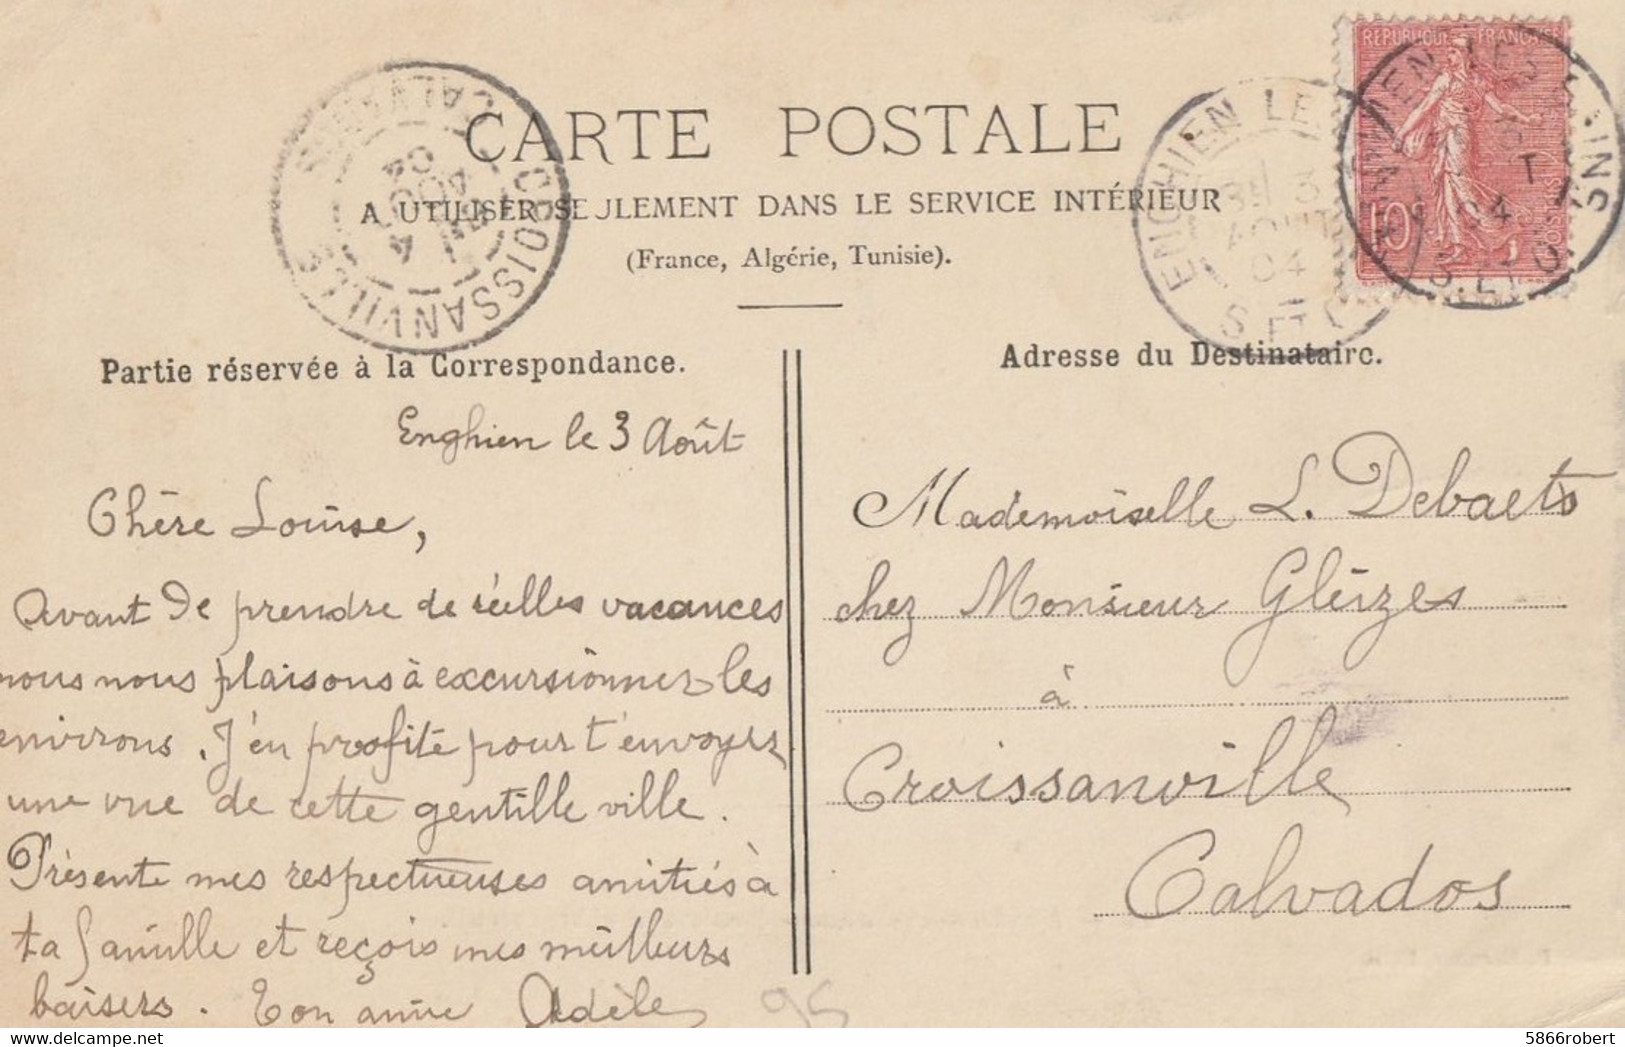 CARTE POSTALE
A UTILISER SEULEMENT DANS LE SERVICE INTÉRIEUR
(France, Algérie, Tunisie).
CROISSANVILLE
4 AOUT 04
ENGHIEN LES
3 AOUT 04
S. ET O.
REPUBLIQUE FRANÇAISE
10c
POSTES
ENGHIEN LES BAINS
04
S. ET O.
Partie réservée à la Correspondance.
Enghien le 3 Août
Chère Louise,
Avant de prendre de réelles vacances
nous nous plaisons à excursionner les
environs. J'en profite pour t'envoyer
une vue de cette gentille ville.
Présente mes respectueuses amitiés à
ta famille et reçois mes meilleurs
baisers. Ton amie Adèle
95
Adresse du Destinataire.
Mademoiselle L. Debaets
chez Monsieur Gleizes
à
Croissanville
Calvados
5866robert